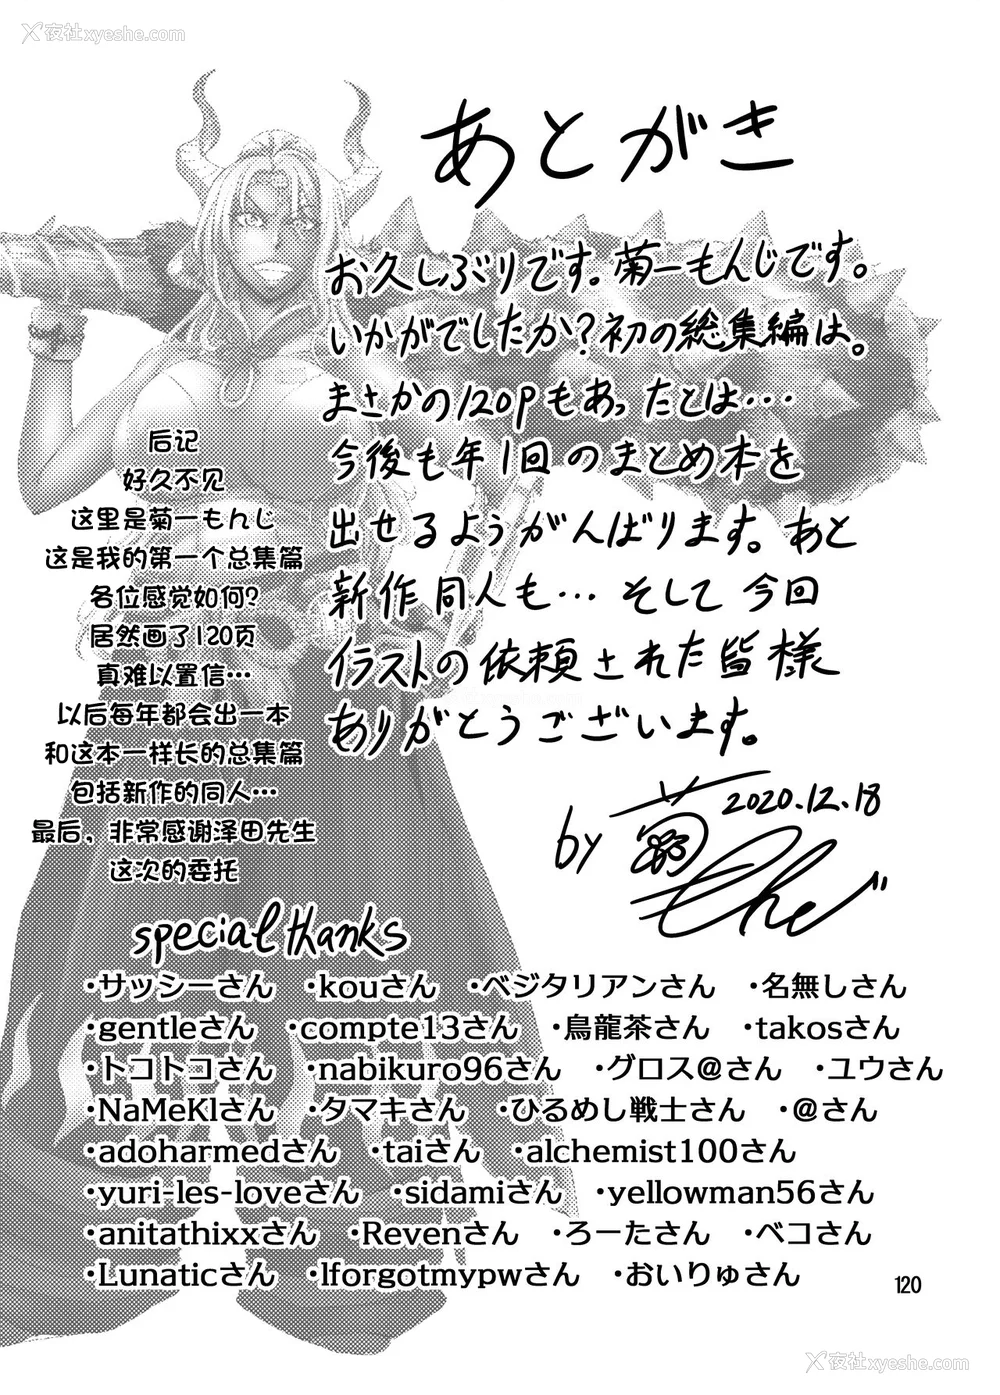 夜社xyeshe.com
夜社xyeshe.com
あとがき
お久しぶりです。菊一もんじです。
いかがでしたか?初の総集編は。
まさかの120pもあったとは…
今後も年1回のまとめ本を
出せるようがんばります。あと
新作同人も…そして今回
イラストの依頼された皆様
ありがとうございます。
by 菊一もんじ 2020.12.18
后记
好久不见
这里是菊一もんじ
这是我的第一个总集篇
各位感觉如何?
居然画了120页
真难以置信…
以后每年都会出一本
和这本一样长的总集篇
包括新作的同人…
最后，非常感谢泽田先生
这次的委托
special thanks
・サッシーさん ・kouさん ・ベジタリアンさん ・名無しさん
・gentleさん ・compte13さん ・鳥龍茶さん ・takosさん
・トコトコさん ・nabikuro96さん ・グロス@さん ・ユウさん
・NaMeKlさん ・タマキさん ・ひるめし戦士さん ・@さん
・adoharmedさん ・taiさん ・alchemist100さん
・yuri-les-loveさん ・sidamiさん ・yellowman56さん
・anitathixxさん ・Revenさん ・ろーたさん ・ベコさん
・Lunaticさん ・lforgotmypwさん ・おいりゅさん
120
夜社xyeshe.com